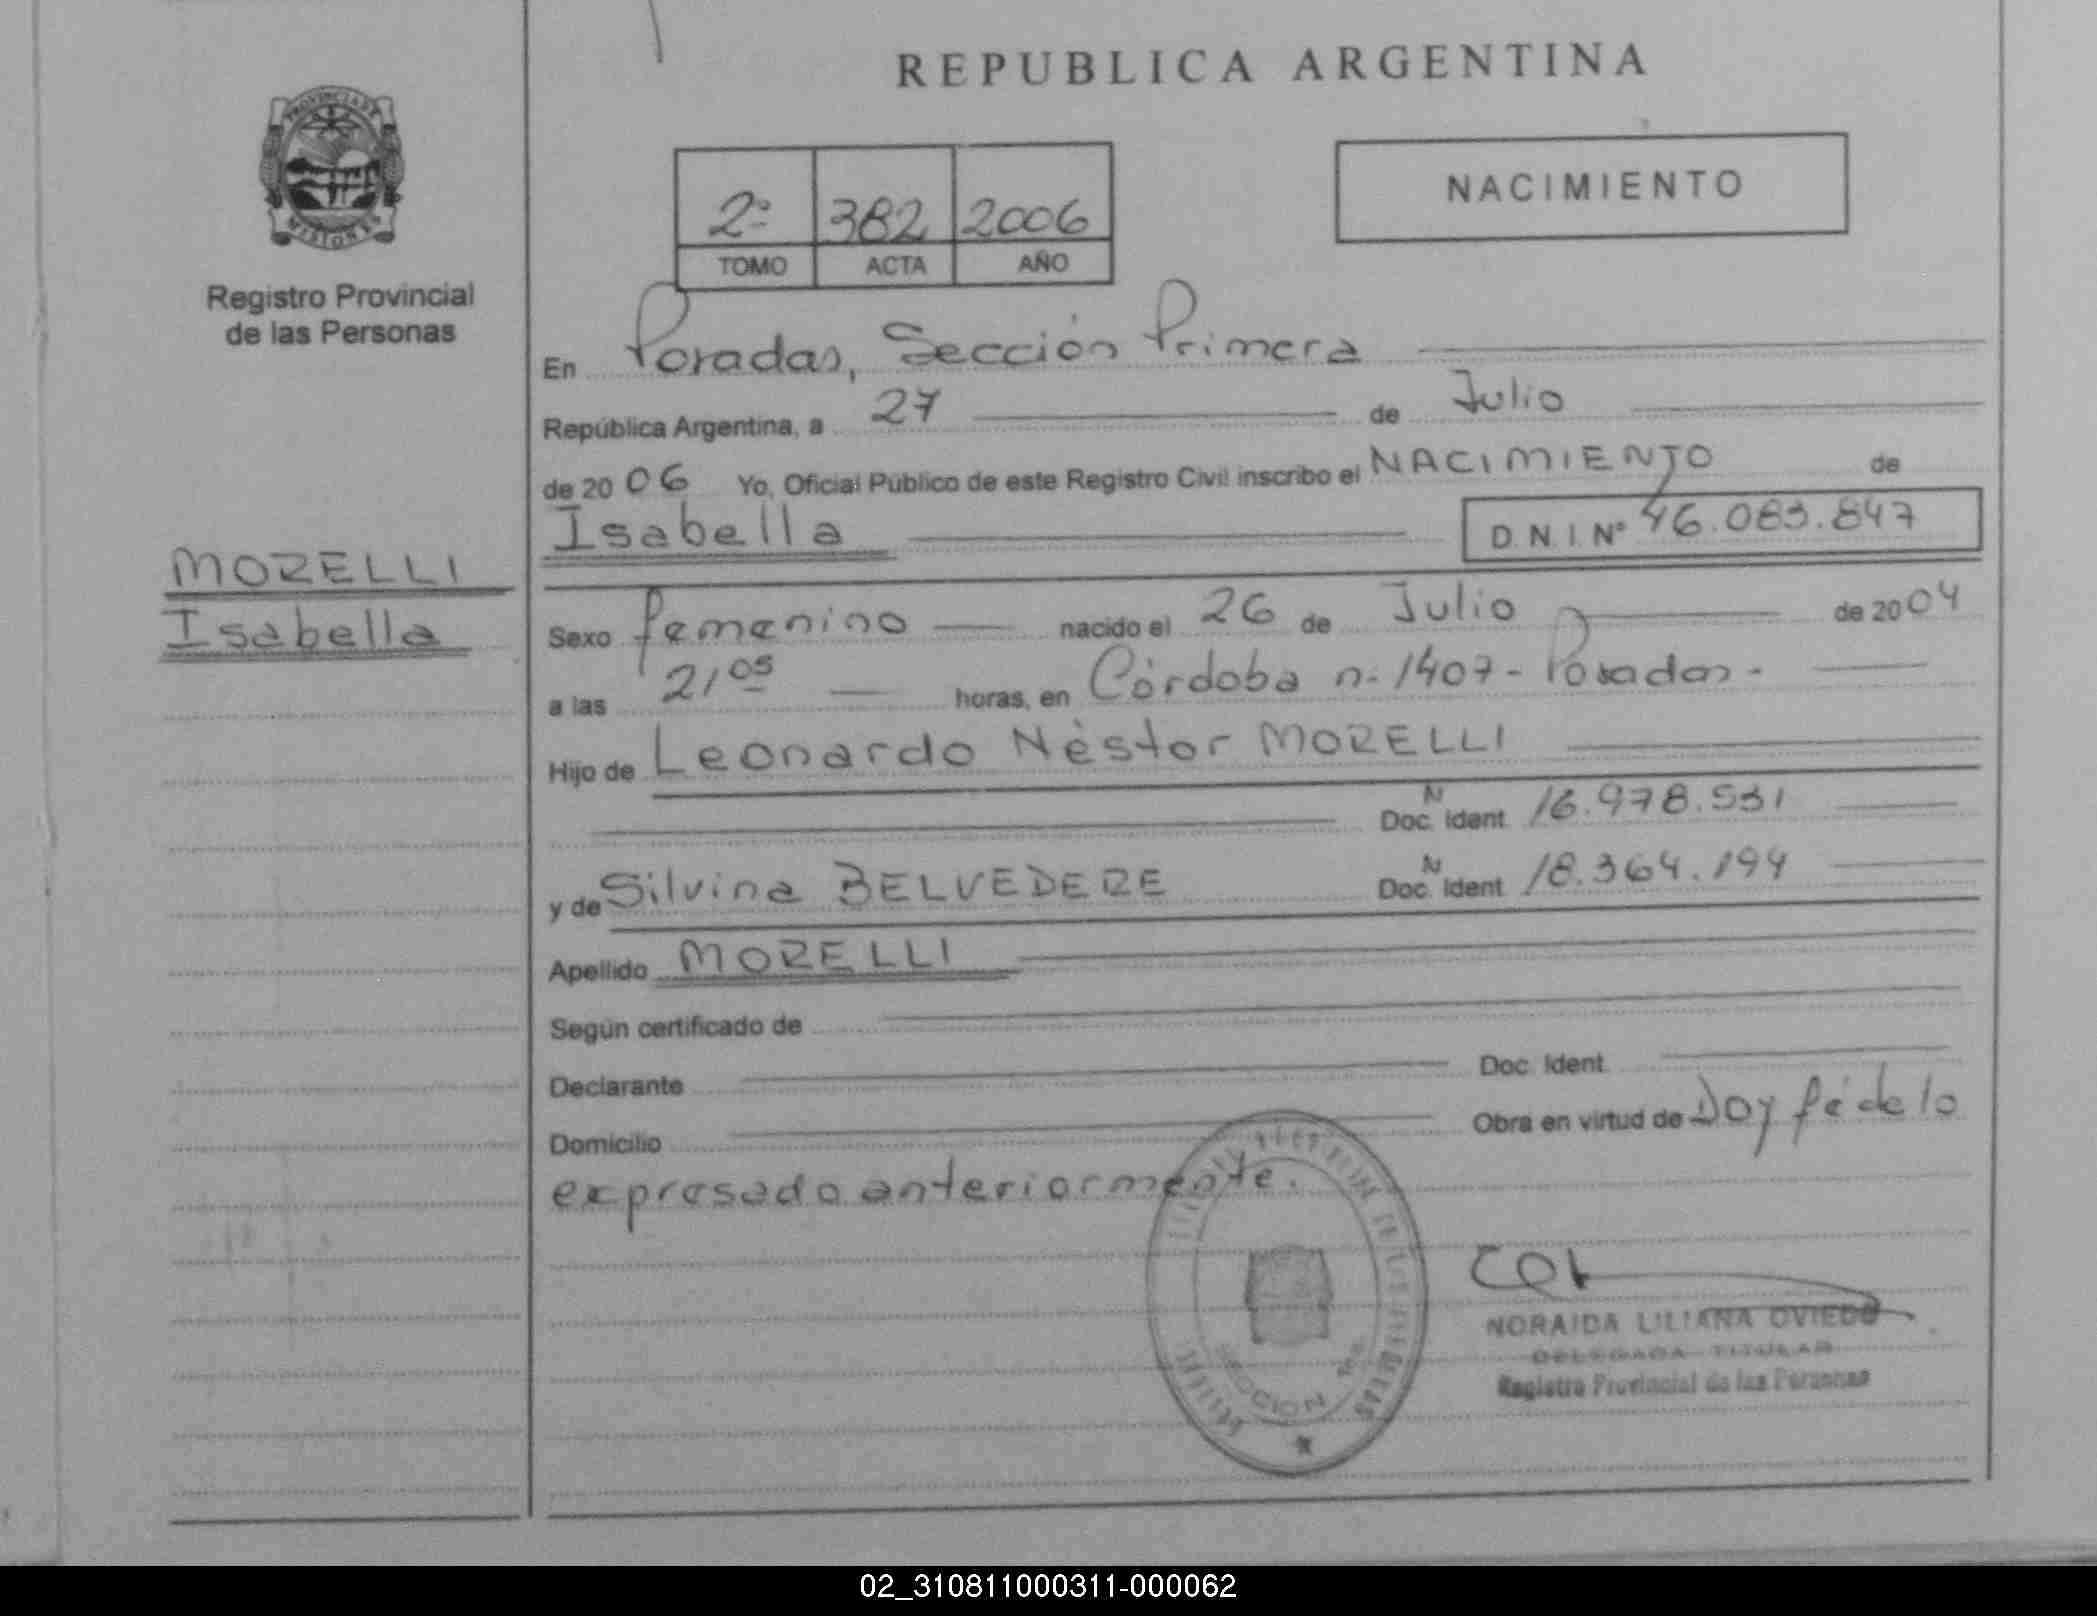 REPUBLICA ARGENTINA
PROVINCIA DE
MISIONES
Registro Provincial
de las Personas
2º 382 2006
TOMO ACTA AÑO
NACIMIENTO
En Posadas, Sección Primera
República Argentina, a 27 de Julio
de 2006 Yo, Oficial Público de este Registro Civil inscribo el NACIMIENTO de
Isabella D.N.I. Nº 46.083.847
MORELLI
Isabella
Sexo femenino nacido el 26 de Julio de 2004
a las 21 05 horas, en Córdoba nº 1407 - Posadas -
Hijo de Leonardo Néstor MORELLI
N
Doc. Ident. 16.978.531
N
y de Silvina BELVEDERE Doc. Ident. 18.364.194
Apellido MORELLI
Según certificado de
Declarante Doc. Ident.
Domicilio Obra en virtud de Doy fé de lo
expresado anteriormente.
SECCION 1ra.
NORAIDA LILIANA OVIEDO
DELEGADA TITULAR
Registro Provincial de las Personas
02_310811000311-000062